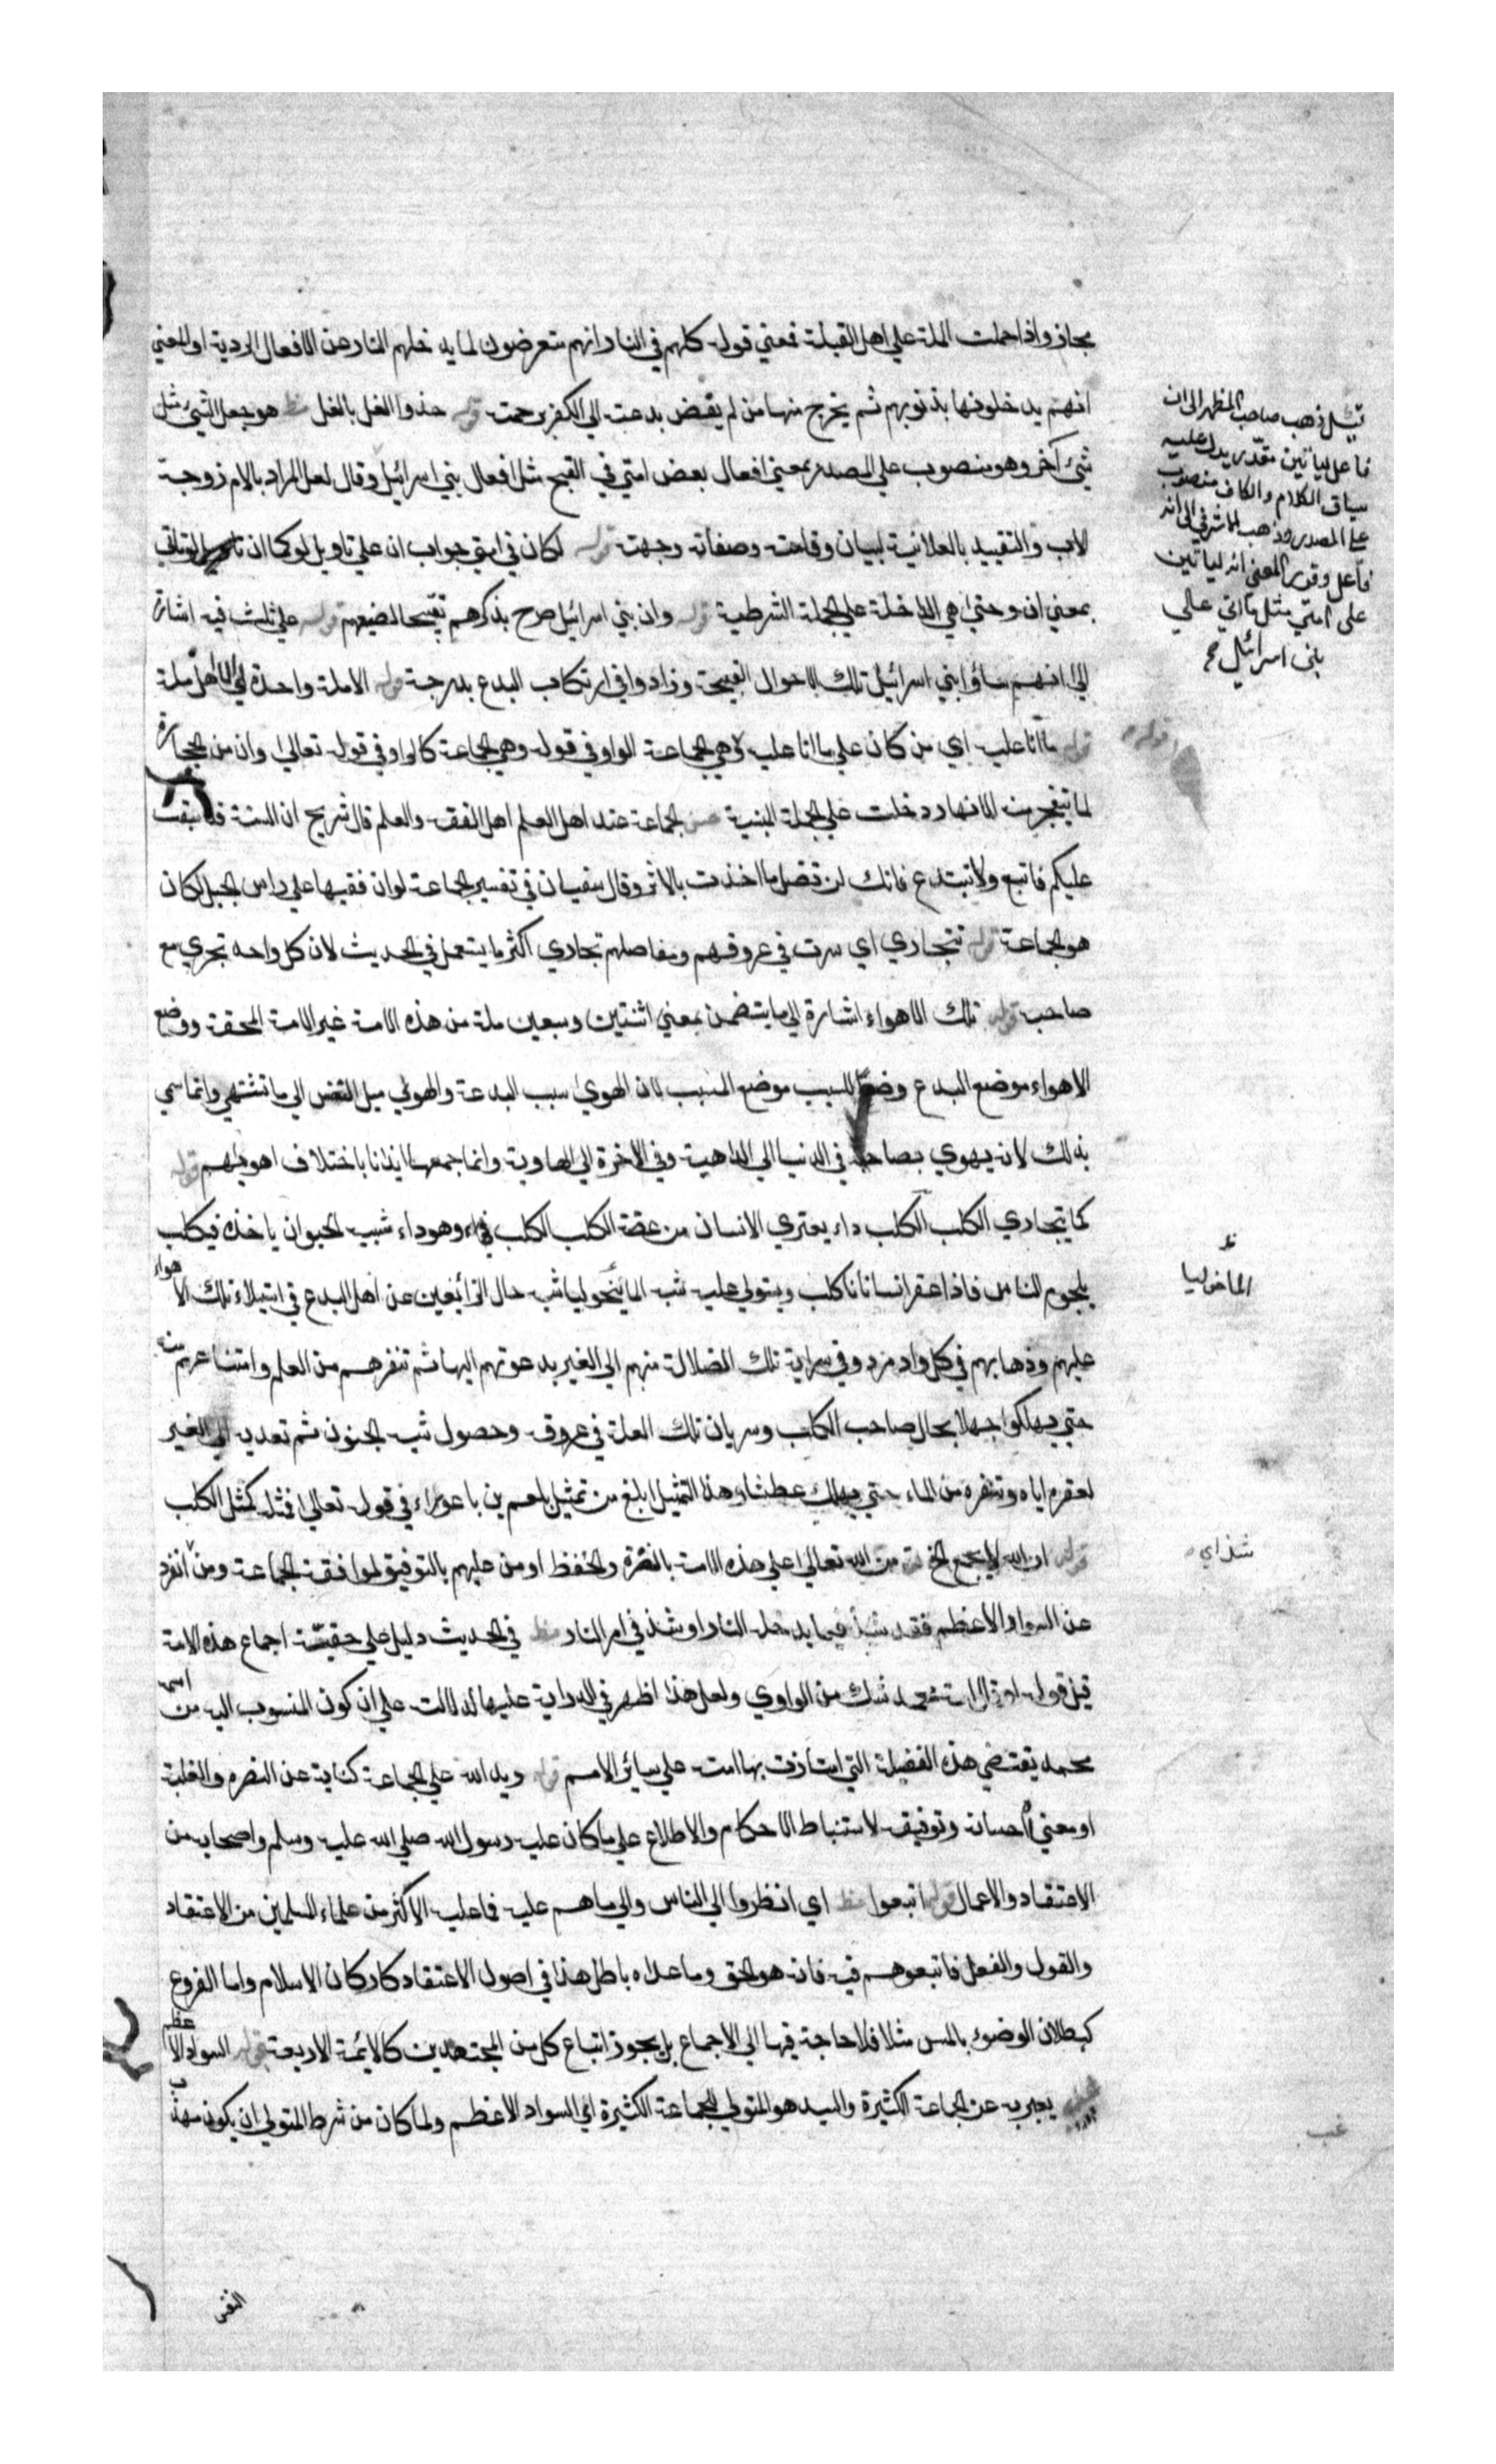 مجاز واذا حملت الملة علي اهل القبلة فمعني قوله كلهم في النار انهم متعرضون لما يدخلهم النار من الافعال الردية او المعني
انهم يدخلونها بذنوبهم ثم يخرج منها من لم يفض بدعته الي الكفر برحمته قوله حذوا النعل بالنعل مظ هو جعل الشيء مثل
شيء آخر وهو منصوب علي المصدر بمعني افعال بعض امتي في القبح مثل افعال بني اسرائيل وقال لعل المراد بالام زوجة
الاب والتقييد بالعلانية لبيان وقاحته وصفاقة وجهه قوله لكان في امتي جواب ان علي تاويل لو كما ان تاتي
بمعني ان وحتي هي الداخلة علي الجملة الشرطية قوله وان بني اسرائيل صرح بذكرهم تقبيحا لصنيعهم قوله علي ثلث فيه اشارة
الي انهم ساووا بني اسرائيل تلك الاحوال القبيحة وزادوا في ارتكاب البدع بدرجة قوله الا ملة واحدة اي الا اهل ملة
قوله ما انا عليه اي من كان علي ما انا عليه قوله وهي الجماعة الواو في قوله وهي الجماعة كالواو في قوله تعالي وان من الحجارة
لما يتفجر منه الانهار دخلت علي الجملة المبنية حس الجماعة عند اهل العلم اهل الفقه والعلم قال شريح ان السنة قد سبقت
عليكم فاتبع ولا تبتدع فانك لن تضل ما اخذت بالاثر وقال سفيان في تفسير الجماعة لو ان فقيها علي راس الجبل لكان
هو الجماعة قوله تتجاري اي سرت في عروقهم ومفاصلهم تجاري اكثر ما يستعمل في الحديث لان كل واحد تجري مع
صاحبه قوله تلك الاهواء اشارة الي ما يتضمن بمعني اثنتين وسبعين ملة من هذه الامة غير الامة المحقة ووضع
الاهواء موضع البدع وضعا للسبب موضع المسبب لان الهوي سبب البدعة والهوي ميل النفس الي ما تشتهي وانما سمي
بذلك لانه يهوي بصاحبه في الدنيا الي الداهية وفي الاخرة الي الهاوية وانما جمعها ايذانا باختلاف اهويتهم قوله
كما يتجاري الكلب الكلب داء يعتري الانسان من عضة الكلب الكلب وهو داء شبيه الحيوان ياخذه فيكلب
بلحوم الناس فاذا عقر انسانا كلب ويستولي عليه شبه الماليخوليا شبه حال الزائغين من اهل البدع في استيلاء تلك الاهواء
عليهم وذهابهم في كل واد مرد وفي سراية تلك الضلالة منهم الي الغير بدعوتهم اليها ثم تنفرهم من العلم وامتناعهم منه
حتي يهلكوا جهلا بحال صاحب الكلب وسريان تلك العلة في عروقه وحصول شبه الجنون ثم تعديه الي الغير
لعقره اياه وتنفره من الماء حتي يهلك عطشا وهذا التمثيل ابلغ من تمثيل بلعم بن باعوراء في قوله تعالي فمثله كمثل الكلب
قوله ان الله لا يجمع الخ من الله تعالي علي هذه الامة بالنصرة والحفظ او من عليهم بالتوفيق لموافقة الجماعة ومن انفرد
عن السواد الاعظم فقد شذ فيما يدخله النار او شذ في امر النار مظ في الحديث دليل علي حقيقة اجماع هذه الامة
قيل قوله او قال امة محمد شك من الراوي ولعل هذا اظهر في الدراية عليها لدلالته علي ان كون المنسوب اليه من اسمه
محمد يقتضي هذه الفضيلة التي امتازت بها امته علي سائر الامم قوله ويد الله علي الجماعة كناية عن النصره والغلبة
او معني احسانه وتوفيقه لاستنباط الاحكام والاطلاع علي ما كان عليه رسول الله صلي الله عليه وسلم واصحابه من
الاعتقاد والاعمال قوله اتبعوا مظ اي انظروا الي الناس والي ما هم عليه فما عليه الاكثر من علماء المسلمين من الاعتقاد
والقول والفعل فاتبعوهم فيه فانه هو الحق وما عداه باطل هذا في اصول الاعتقاد كاركان الاسلام واما الفروع
كبطلان الوضوء بالمس مثلا فلا حاجة فيها الي الاجماع بل يجوز اتباع كل من المجتهدين كالائمة الاربعة قوله السواد الاعظم
يعبر به عن الجماعة الكثيرة والسيد هو المتولي للجماعة الكثيرة اي السواد الاعظم ولما كان من شرط المتولي ان يكون مهذب
النفس
قيل ذهب صاحب المظهر الي ان
فاعل لياتين مقدر يدل عليه
سياق الكلام والكاف منصوب
علي المصدر وذهب الاشرفي الي انه
فاعل وقدر المعني انه لياتين
علي امتي مثل ما اتي علي
بني اسرائيل
قوله
الماخوليا
شذ اي